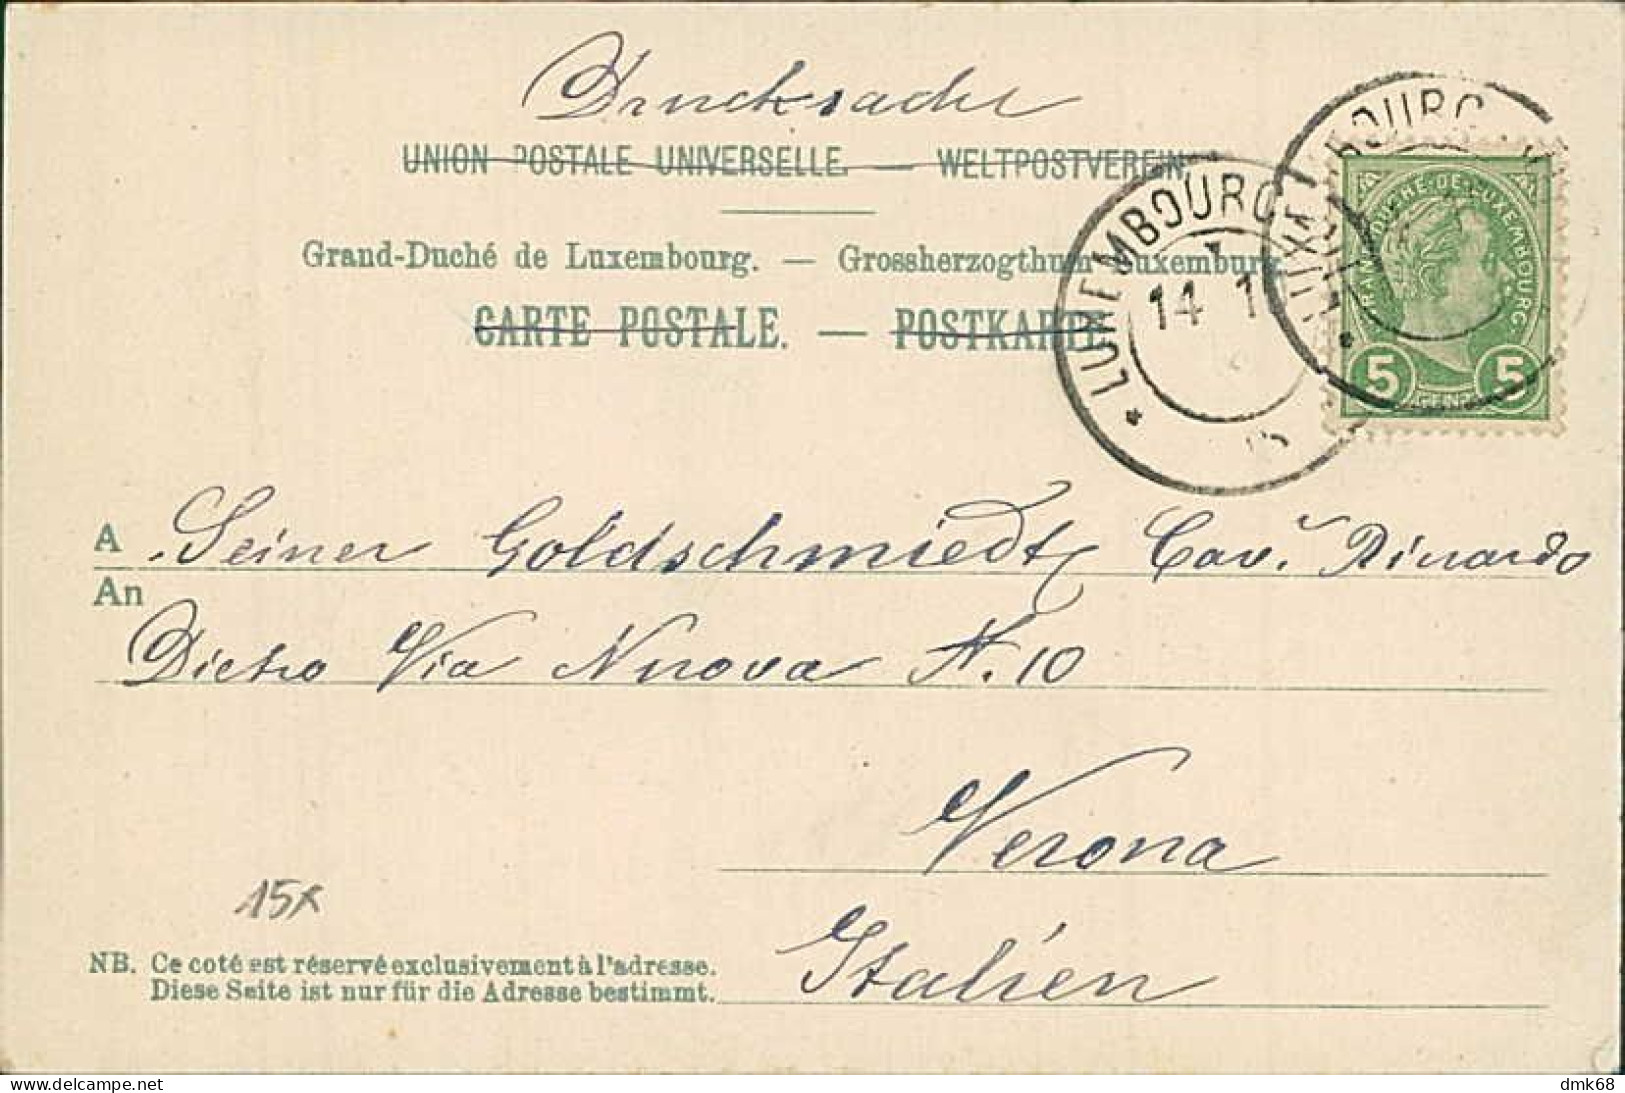 Drucksache
UNION POSTALE UNIVERSELLE. — WELTPOSTVEREIN.
Grand-Duché de Luxembourg. — Grossherzogthum Luxemburg.
CARTE POSTALE. — POSTKARTE
* LUXEMBOURG
14 1
* LUXEMBOURG
GRAND DUCHÉ DE LUXEMBOURG.
5 CENT. 5
A Seiner Goldschmiedt Cav.
An
Pietro Via Nuova N. 10
Verona
Italien
15x
NB. Ce coté est réservé exclusivement à l'adresse.
Diese Seite ist nur für die Adresse bestimmt.
dmk68